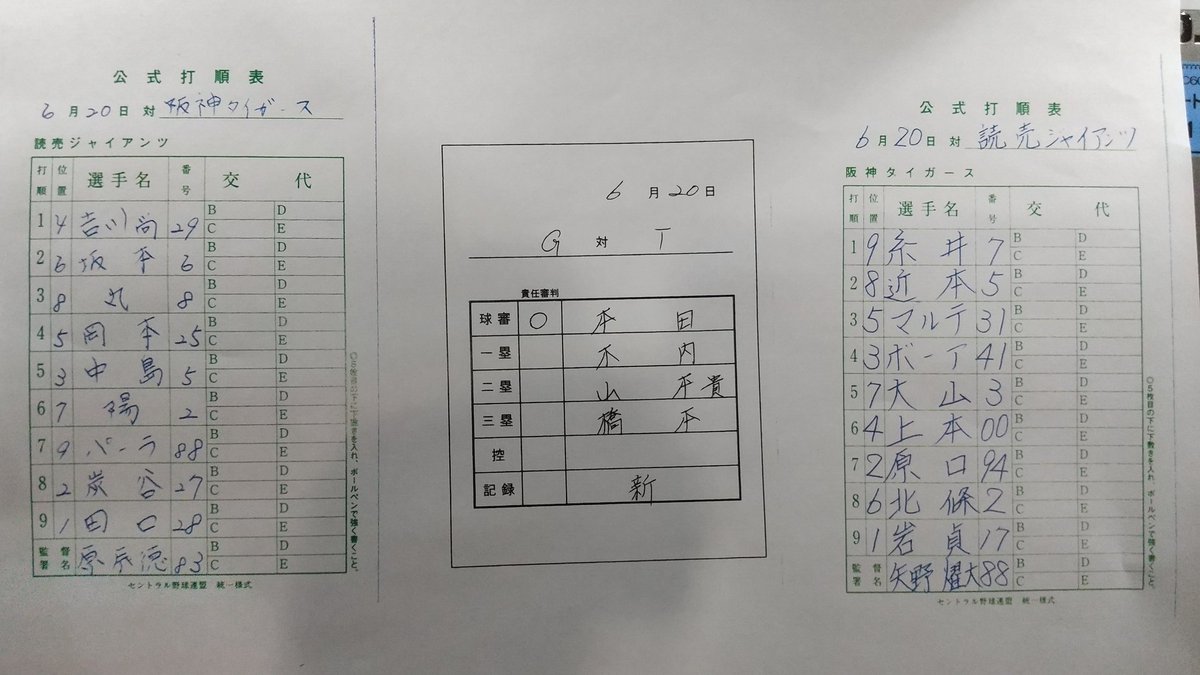 公式打順表
6月20日 対 阪神タイガース
読売ジャイアンツ
打順 位置 選手名 番号 交代
1 4 吉川尚 29 B D C E
2 6 坂本 6 B D C E
3 8 丸 8 B D C E
4 5 岡本 25 B D C E
5 3 中島 5 B D C E
6 7 陽 2 B D C E
7 9 パーラ 88 B D C E
8 2 炭谷 27 B D C E
9 1 田口 28 B D C E
監督署名 原辰徳 83 B D C E
セントラル野球連盟 統一様式
◎5枚目の下に下敷きを入れ、ボールペンで強く書くこと。
6月20日
G 対 T
責任審判
球審 ○ 本田
一塁 木内
二塁 山本貴
三塁 橋本
控
記録 新
公式打順表
6月20日 対 読売ジャイアンツ
阪神タイガース
打順 位置 選手名 番号 交代
1 9 糸井 7 B D C E
2 8 近本 5 B D C E
3 5 マルテ 31 B D C E
4 3 ボーア 41 B D C E
5 7 大山 3 B D C E
6 4 上本 00 B D C E
7 2 原口 94 B D C E
8 6 北條 2 B D C E
9 1 岩貞 17 B D C E
監督署名 矢野燿大 88 B D C E
セントラル野球連盟 統一様式
◎5枚目の下に下敷きを入れ、ボールペンで強く書くこと。